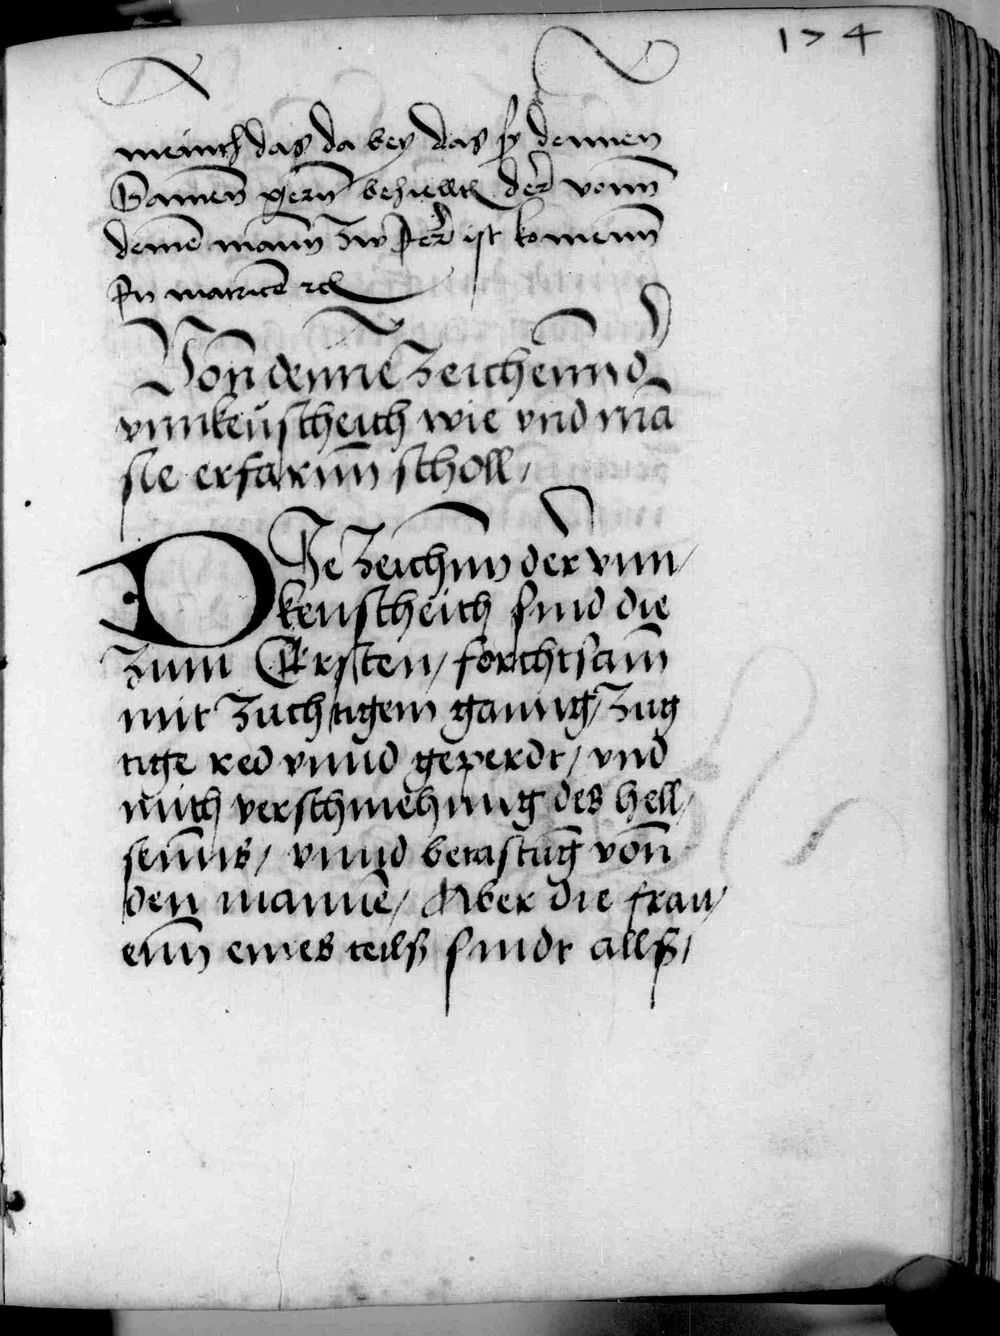 174
mainth das da bey das sy dennen
Samen gern behiellth der vonn
deme mann zw Jer ist komenn
Jn matricē ꝛc
Von denne zeichenn d
vnnkeuscheith wie vnd mā
sie erfarnn scholl,
DJe zeichnn der vnn,
keuscheith sind die
zum Ersten, forchtsam̄
mit zuchtigem ganng, zug
tige red vnnd geperdt, vnd
mith verschmehung des hell,
senns, vnnd betastūg von̄
den mannē, Aber die frau,
enn eines teilß sindt allß,